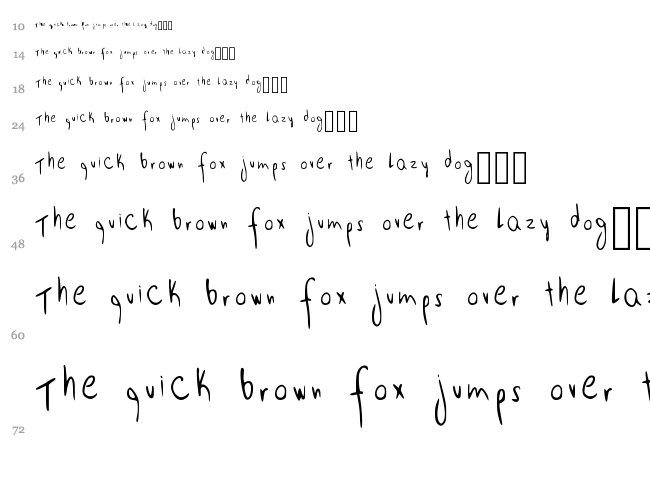 10 The quick brown fox jumps over the lazy dog▯▯▯
14 The quick brown fox jumps over the lazy dog▯▯▯
18 The quick brown fox jumps over the lazy dog▯▯▯
24 The quick brown fox jumps over the lazy dog▯▯▯
36 The quick brown fox jumps over the lazy dog▯▯▯
48 The quick brown fox jumps over the lazy dog▯▯
60 The quick brown fox jumps over the laz
72 The quick brown fox jumps over t